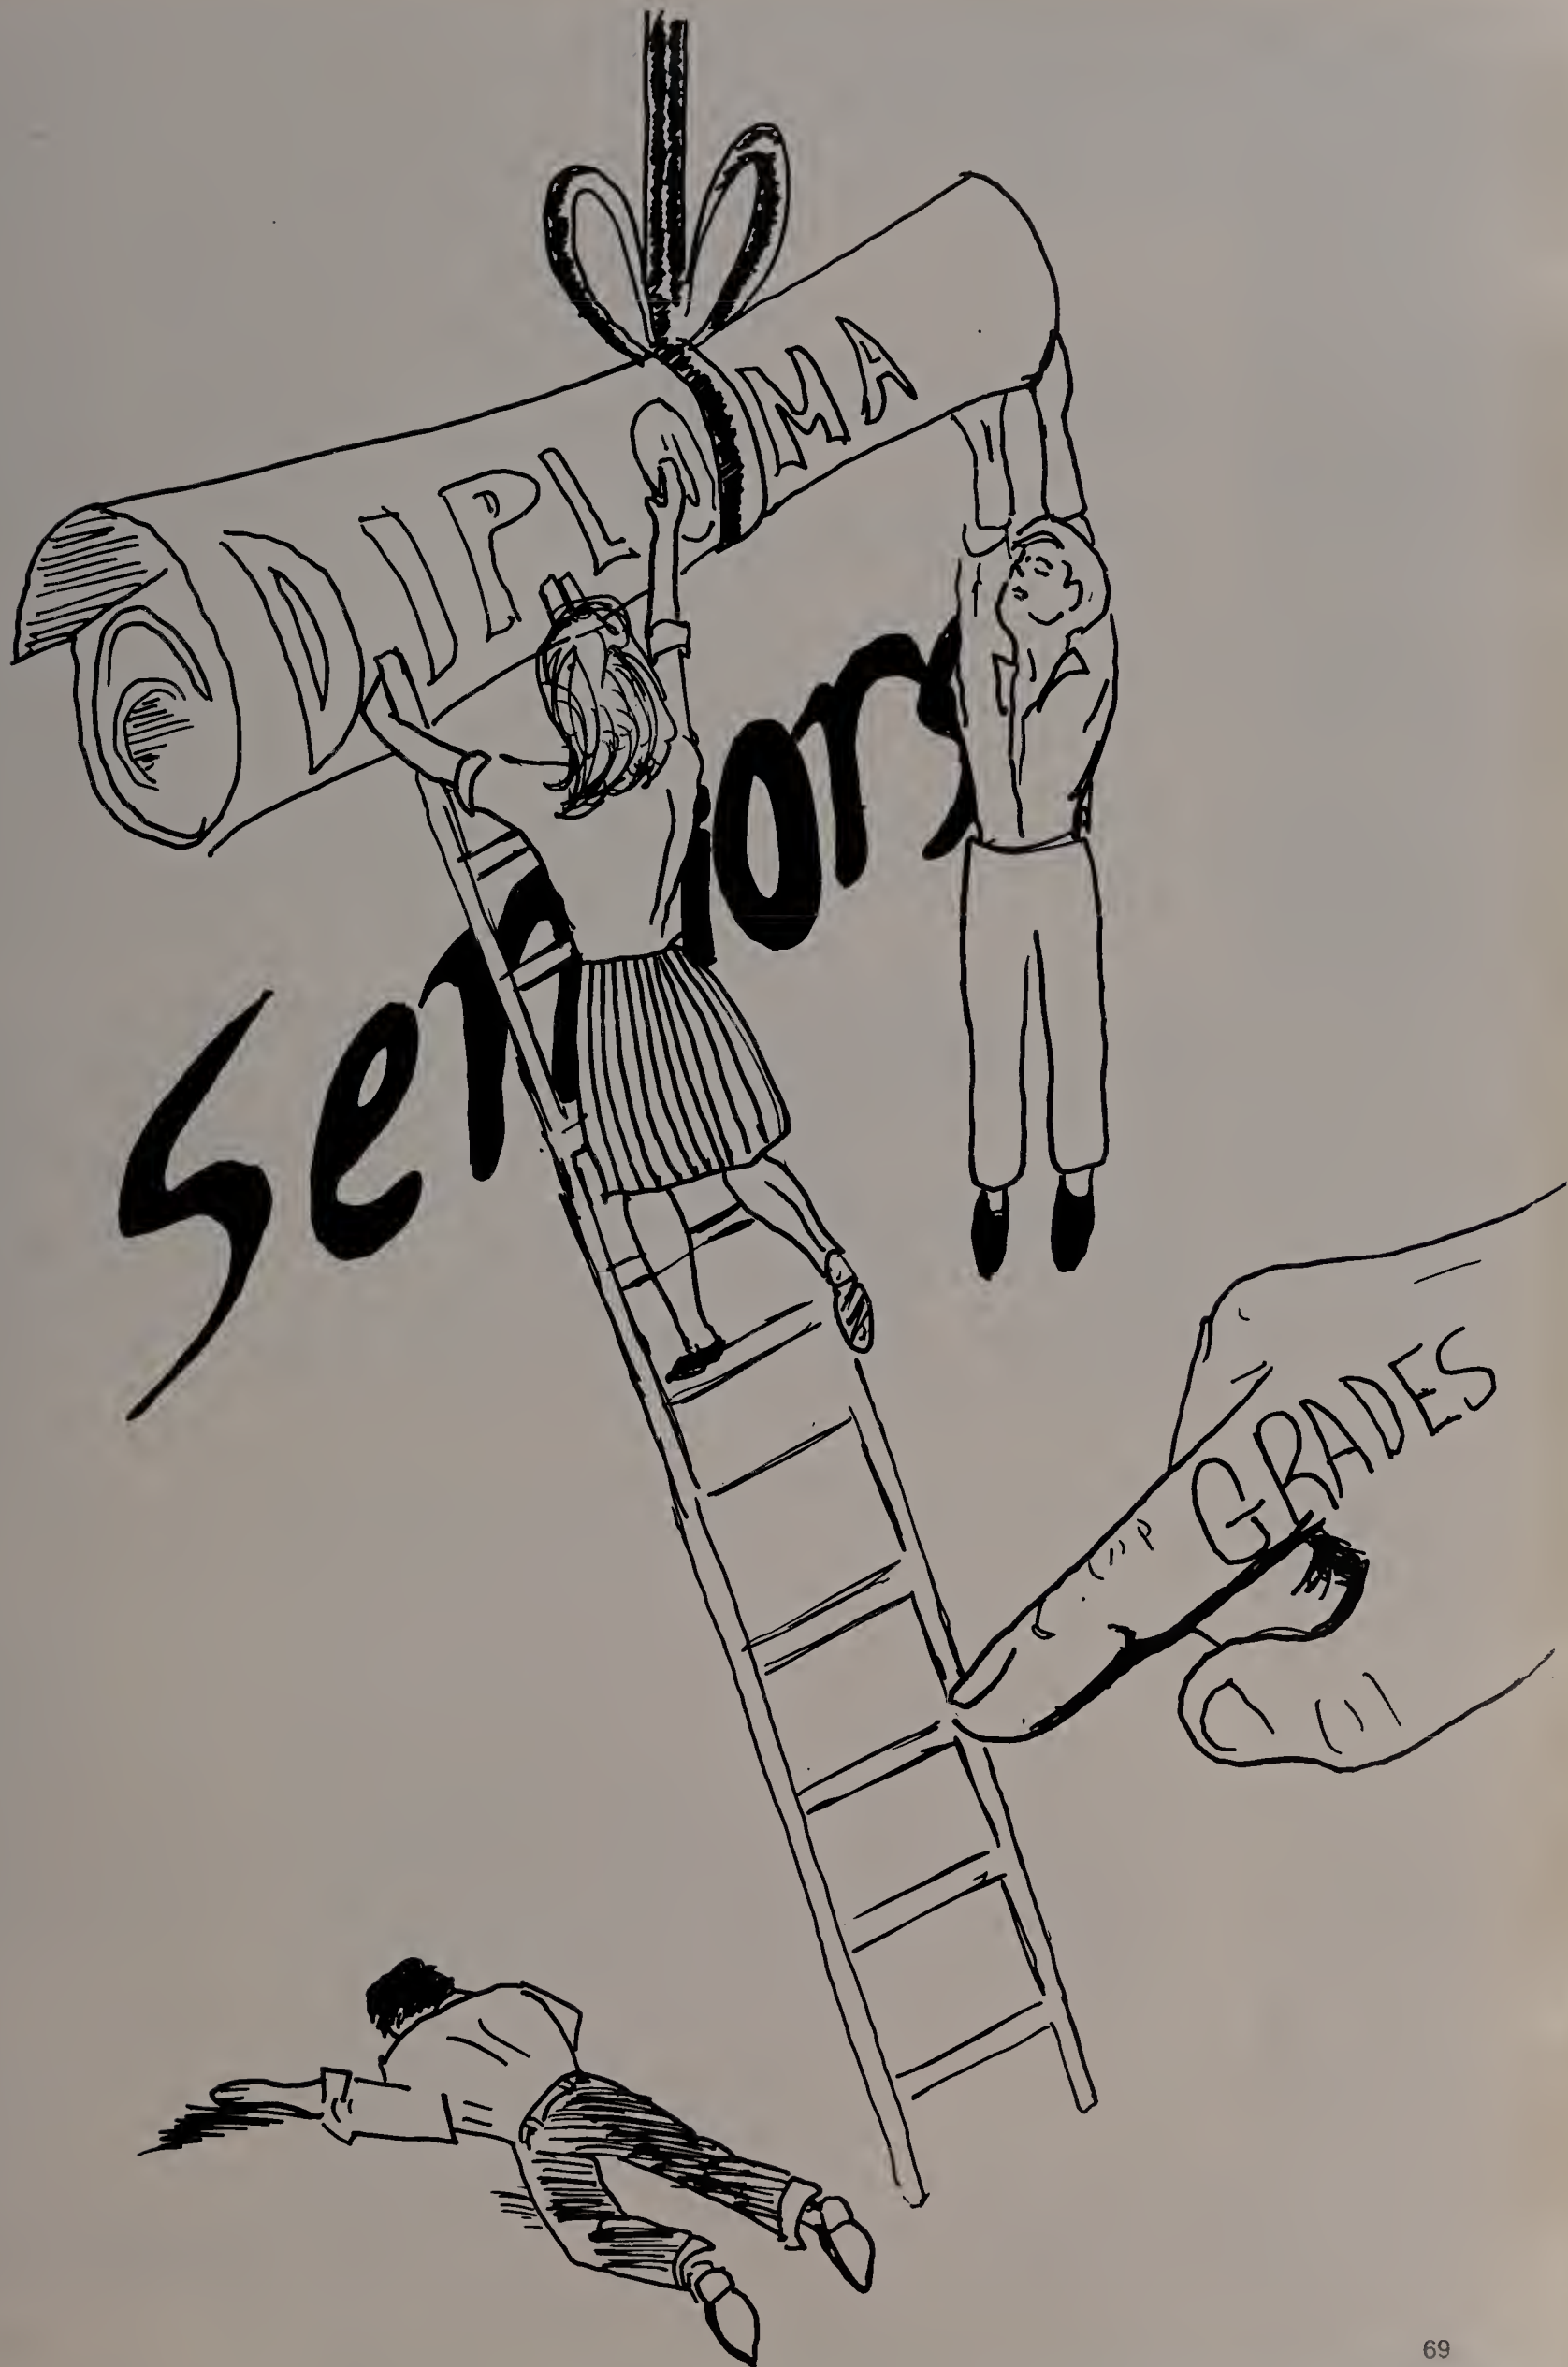 DIPLOMA
Seniors
GRADES
69